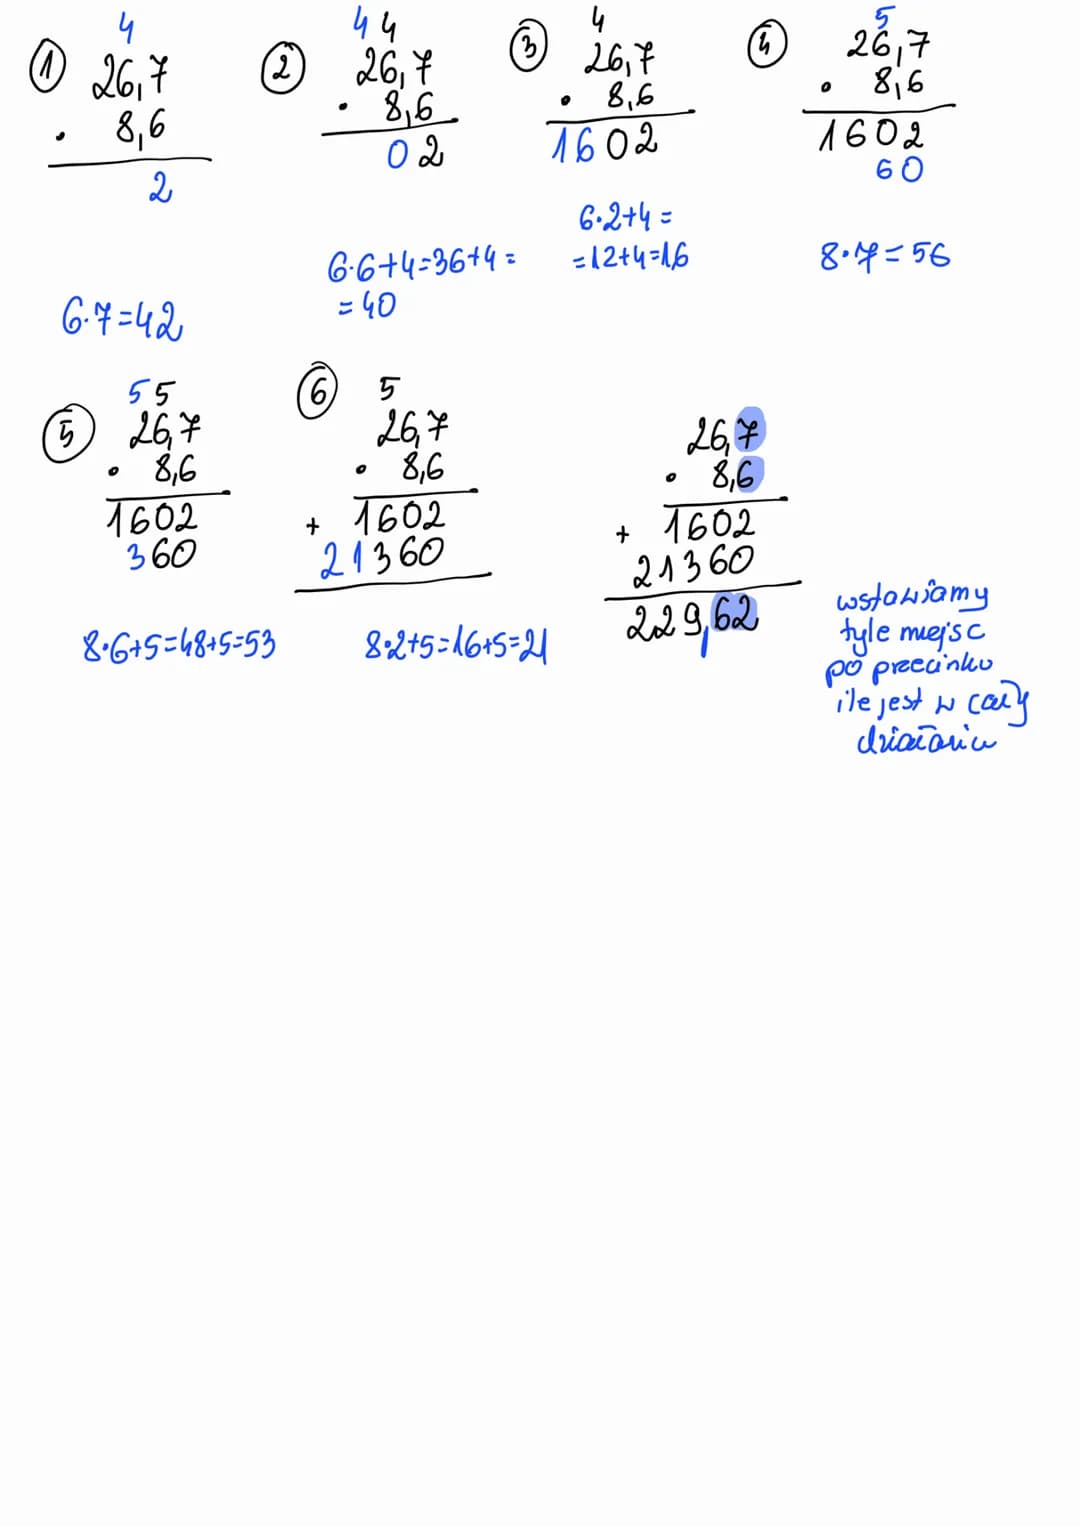 ① 4
26,7
· 8,6
2
6·7=42
② 4 4
26,7
· 8,6
02
6·6+4=36+4=
=40
③ 4
26,7
· 8,6
1602
6·2+4=
=12+4=16
④ 5
26,7
· 8,6
1602
60
8·7=56
⑤ 5 5
26,7
· 8,6
1602
360
8·6+5=48+5=53
⑥ 5
26,7
· 8,6
+ 1602
21360
8·2+5=16+5=21
26,7
· 8,6
+ 1602
21360
229,62
wstawiamy
tyle miejsc
po przecinku
ile jest w całym
działaniu